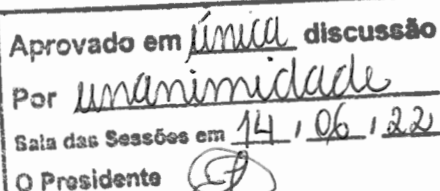 Aprovado em única discussão
Por unanimidade
Sala das Sessões em 14 / 06 / 22
O Presidente